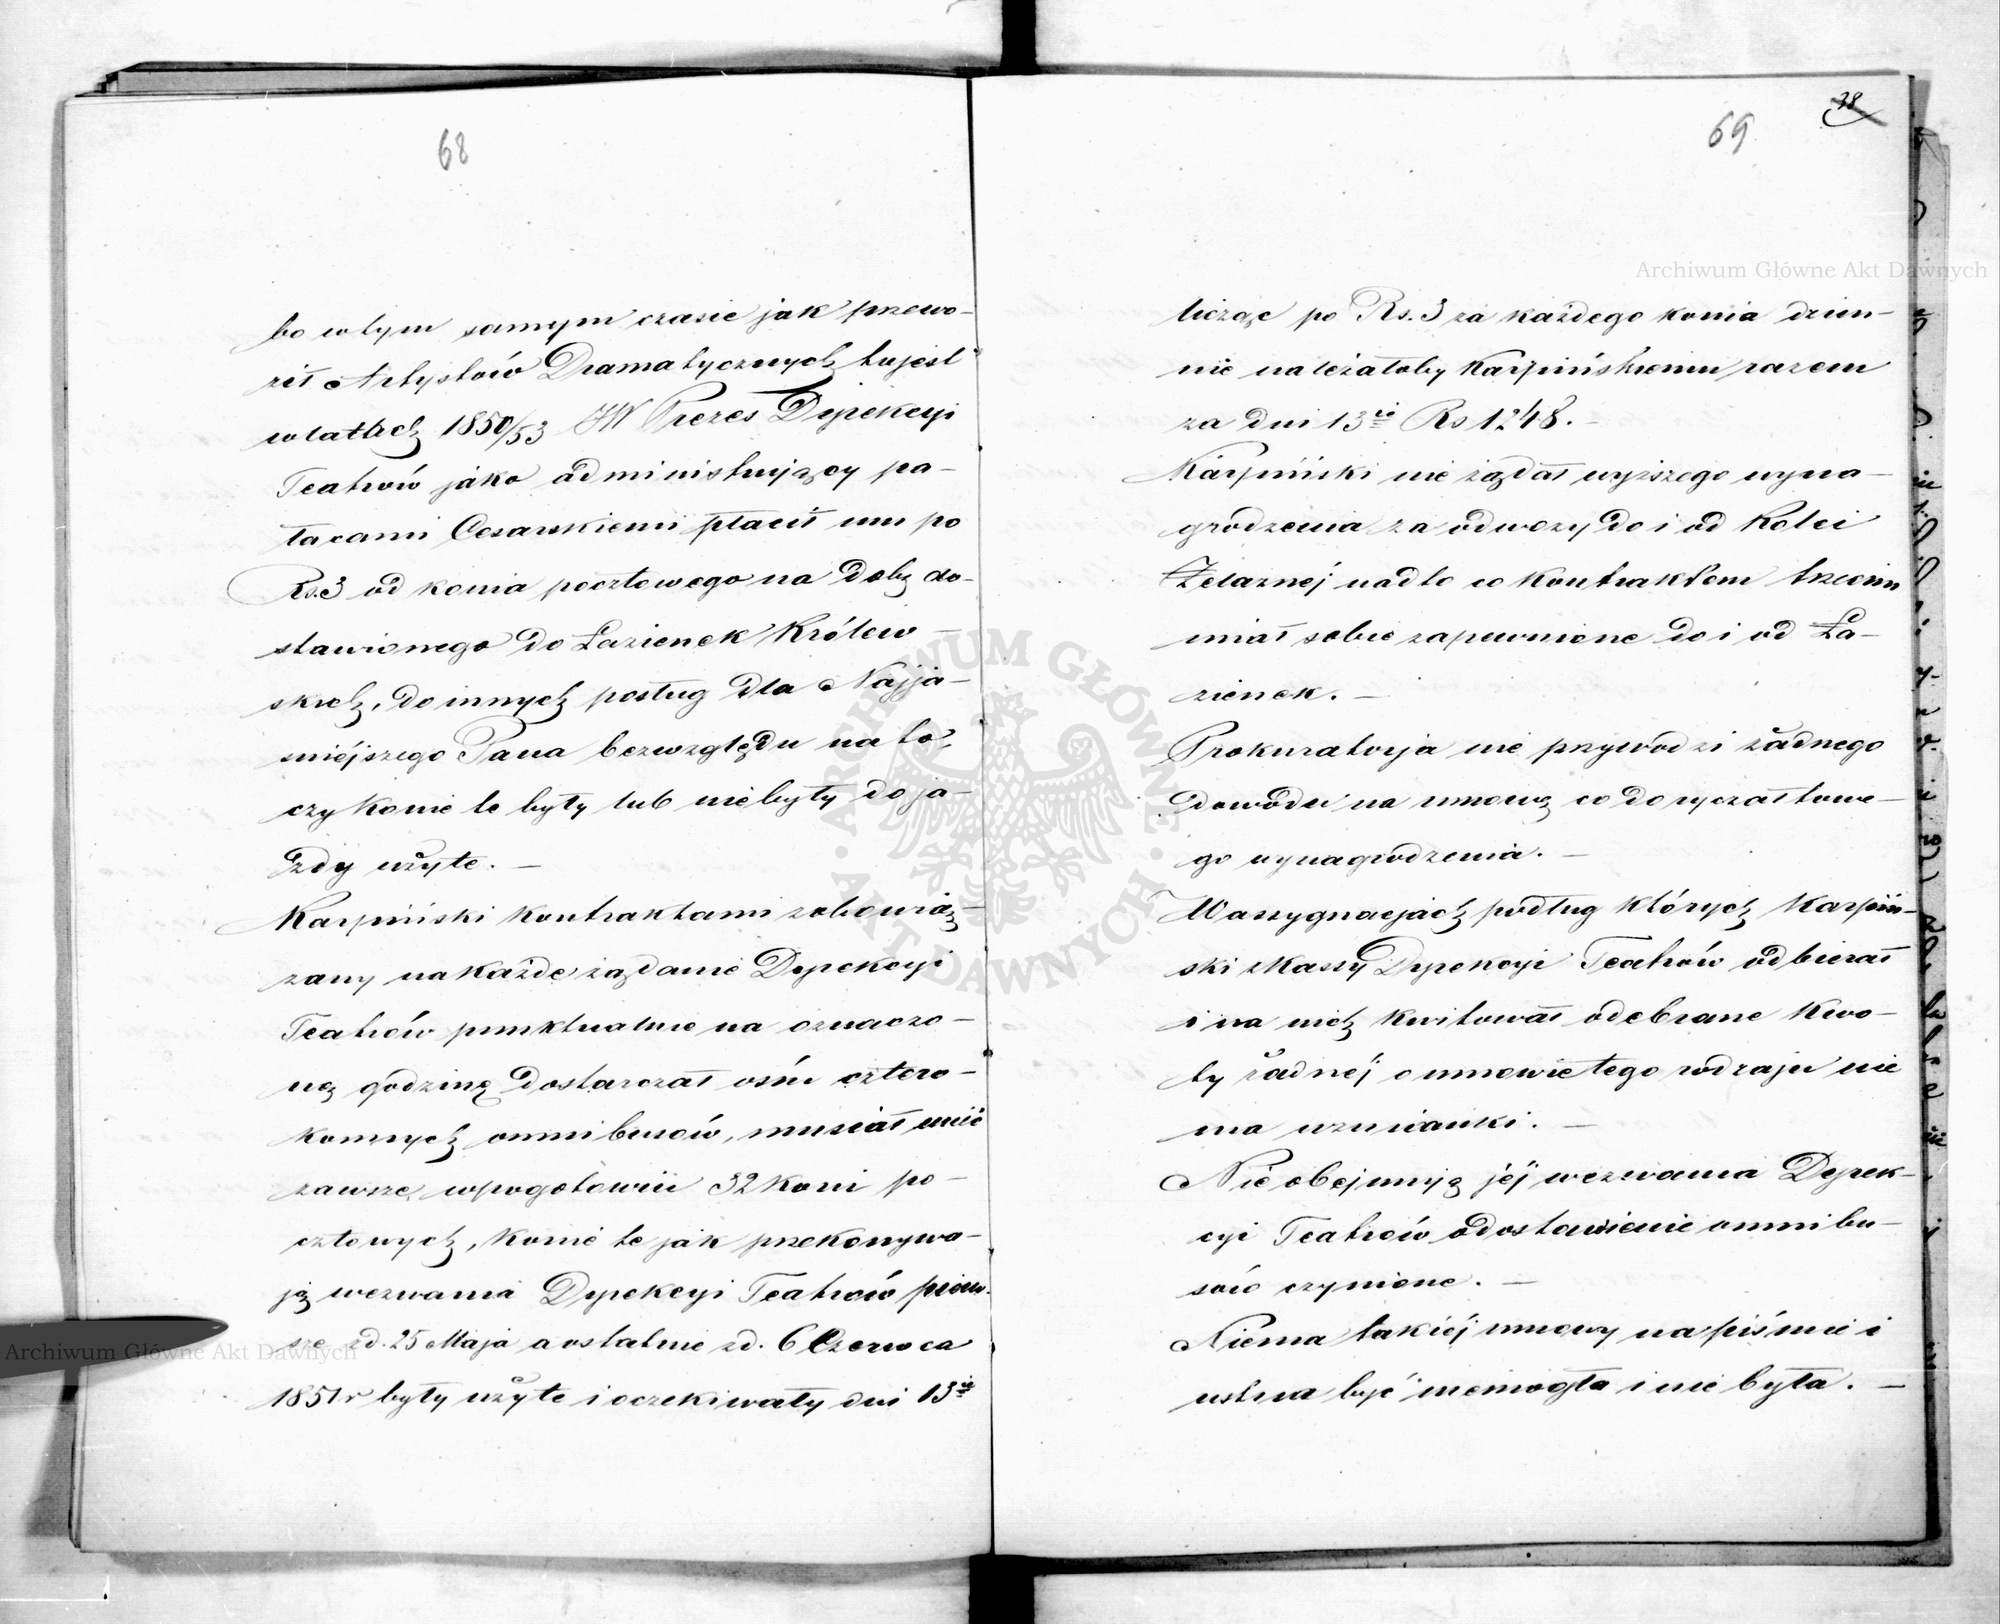 68
bo w tym samym czasie jak przewo-
ził Artystów Dramatycznych tojest
w latach 1850/53 JW Prezes Dyrekcyi
Teatrów jako administrujący pa-
łacami Cesarskiemi płacił mu po
Rs. 3 od konia pocztowego na dobę do-
stawionego do Łazienek Królew-
skich, do innych posług dla Najja-
śniejszego Pana bezwzględu na to,
czy konie te były lub nie były do ja-
zdy użyte. —
Karpiński kontraktami zobowią-
zany na każde żądanie Dyrekcyi
Teatrów punktualnie na oznaczo-
ną godzinę dostarczał ośm cztero-
konnych omnibusów, musiał mieć
zawsze w pogotowiu 32 koni po-
cztowych, konie te jak przekonywa-
ją wezwania Dyrekcyi Teatrów pierw-
sze zd. 25 Maja a ostatnie zd. 6 Czerwca
1851 r były użyte i oczekiwały dni 13
38
69
licząc po Rs. 3 za każdego konia dzien-
nie należałoby Karpińskiemu razem
za dni 13 Rs 1248. -
Karpiński nie żądał wyższego wyna-
grodzenia za odwozy do i od Kolei
Żelaznej nadto co kontraktem trzecim
miał sobie zapewnione do i od Ła-
zienek. —
Prokuratorja nie przywodzi żadnego
dowodu na umowę co do ryczałtowe-
go wynagrodzenia. —
W assygnacjach podług których Karpiń-
ski z Kassy Dyrekcyi Teatrów odbierał
i na nich kwitował odebrane kwo-
ty żadnej o umowie tego rodzaju nie
ma wzmianki. —
Nie obejmują jej wezwania Dyrek-
cyi Teatrów o dostawienie omnibu-
sów czynione. —
Niema takiej umowy na piśmie i
ustna być niemogła i nie była. —
Archiwum Główne Akt Dawnych
Archiwum Główne Akt Dawnych
ARCHIWUM GŁÓWNE · AKT DAWNYCH ·